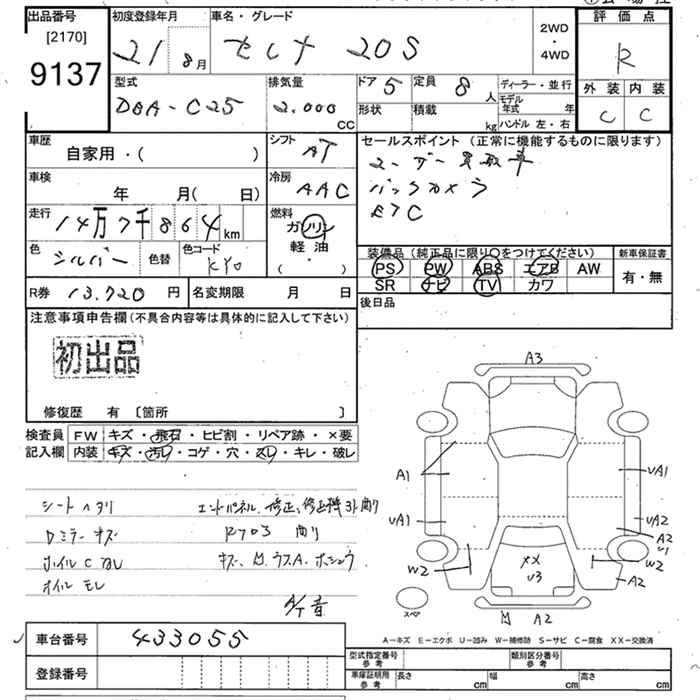 出品番号
[2170]
9137
初度登録年月
21 8月
車名・グレード
セレナ 20S
2WD
・
4WD
評価点
R
外装 内装
C C
型式
DBA-C25
排気量
2.000
CC
ドア 5
形状
定員 8人
積載 kg
ディーラー・並行
モデル年式 年
ハンドル 左・右
車歴
自家用・( )
シフト
AT
セールスポイント (正常に機能するものに限ります)
ユーザー買取車
バックカメラ
ETC
車検
年 月( 日)
冷房
AAC
走行
14万7千864km
燃料
ガソリン
軽油
( ・ )
色
シルバー
色替
色コード
KY0
装備品 (純正品に限り○をつけてください)
PS PW ABS エアB AW
SR ナビ TV カワ
新車保証書
有・無
R券 13.720円
名変期限 月 日
後日品
注意事項申告欄(不具合内容等は具体的に記入して下さい)
初出品
修復歴 有 〔箇所 〕
検査員記入欄
FW キズ・飛石・ヒビ割・リペア跡・×要
内装 キズ・汚レ・コゲ・穴・スレ・キレ・破レ
シートヘタリ
Dミラーキズ
ホイルCなし
オイルモレ
エンドパネル.修正、修正機
キズ、凹
A3
A1
UA1
UA1
UA2
A2
W2
W2
A2
XX
U3
A2
スペア
A-キズ E-エクボ U-凹み W-補修跡 S-サビ C-腐食 XX-交換済
車台番号
433055
登録番号
型式指定番号
参考
類別区分番号
参考
車庫証明用
参考
長さ cm
幅 cm
高さ cm